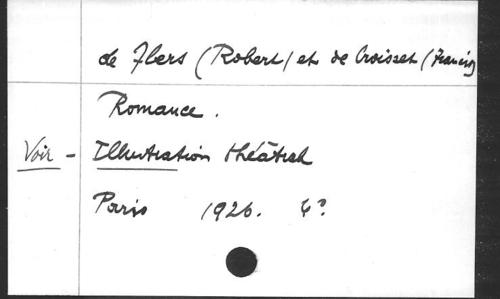 de Flers (Robert) et de Croisset (Francis)
Romance.
Voir - Illustration théâtral
Paris 1926. 4°